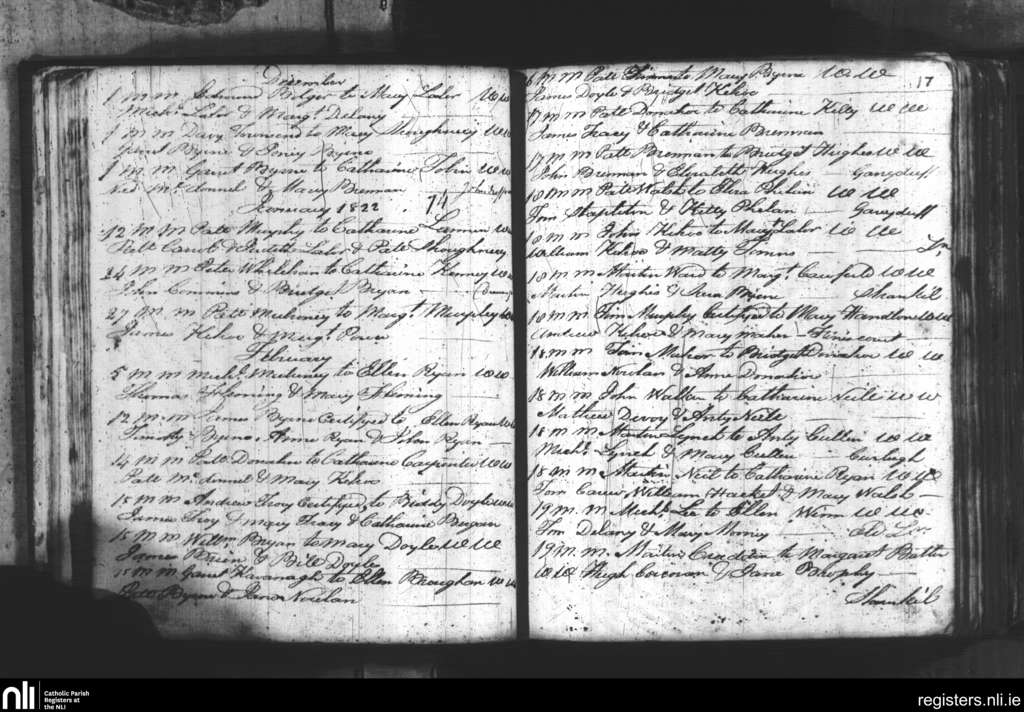 December
1 m m Edmond Bolger to Mary Lalor W W
Mich. Lalor & Marg.t Delany
1 m m Davy Townsend to Mary Shoughnesy W W
Byrne & Byrne
1 m m Garret Byrne to Catharine Tobin W W
Ned McDonnel & Mary Brennan
January 1822 74
12 m m Patt Murphy to Catharine Lannin W
& Judith Lalor & Patt Shoughnesy
24 m m Peter Whelehan to Catharine Kenney W W
John Commins & Bridget Bryan
27 m m Patt Mulreney to Marg.t Murphy W W
James Kehoe & Marg.t Power
February
5 m m Mich.l Mulreney to Ellen Ryan W W
Thomas Fleming & Mary Fleming
12 m m James Byrne Certifyed to Ellen Ryan W W
Timothy Byrne Anne Ryan & John Ryan
14 m m Patt Donahoe to Catharine Carpenter W W
Patt McDonnel & Mary Kehoe
15 m m Andrew Troy Certifyed to Biddy Doyle W W
James Troy & Mary Tracy & Catharine Brigan
15 m m Willm Bryan to Mary Doyle W W
James Brien & Bill Doyle
15 m m Garret Kavanagh to Ellen Braughan W W
Patt Byrne & James Nowlan
17
6 m m Patt to Mary Byrne W W
James Doyle & Bridget Kehoe
17 m m Patt Donahoe to Catharine Kelly W W
James Tracy & Catharine Brennan
17 m m Patt Brennan to Bridget Hughes W W
John Brennan & Elizabeth Hughes Garryduff
18 m m Patt Walsh to Eliza Phelan W W
Tom Stapleton & Kitty Phelan Garryduff
18 m m John Kehoe to Marg.t Lalor W W
William Kehoe & Matty Timins
18 m m Martin Ward to Marg.t Caulfield W W
Martin Hughes & Byrne Shankil
18 m m Tim Murphy Certifyed to Mary Handlon W W
Andrew Kehoe & Mary Maher
18 m m Tom Meehor to Bridget Donahoe W W
William Nowlan & Anne Donahoe
18 m m John Wallan to Catharine Neile W W
Mathew Devoy & Anty Neile
18 m m Martin Lynch to Anty Cullen W W
Mich.l Lynch & Mary Cullen Curlagh
18 m m Martin Neil to Catharine Ryan W W
Tom Carew William Hacket & Mary Walsh
19 m m Mich.l Lee to Ellen W W
Tom Delany & Mary Old
19 m m Martin to Margaret Butler
W W Hugh Corcoran & Jane Brophy
Shankil
nli
Catholic Parish
Registers at
the NLI
registers.nli.ie